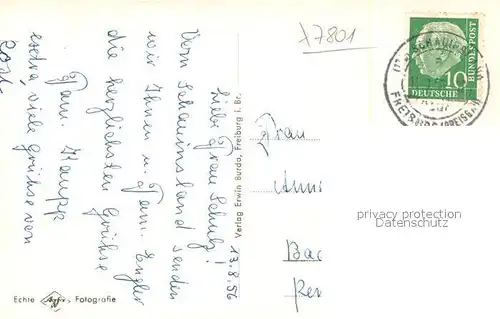 17801
Liebe Frau Schulz!
Vom Schauinsland senden
wir Ihnen u. Fam. Engler
die herzlichsten Grüsse
Fam. Kaupp
extra, viele Grüsse von
13.8.56
Verlag Erwin Burda, Freiburg i. Br.
Echte Agfa Fotografie
DEUTSCHE BUNDESPOST
10
Frau
Bad
privacy protection
Datenschutz